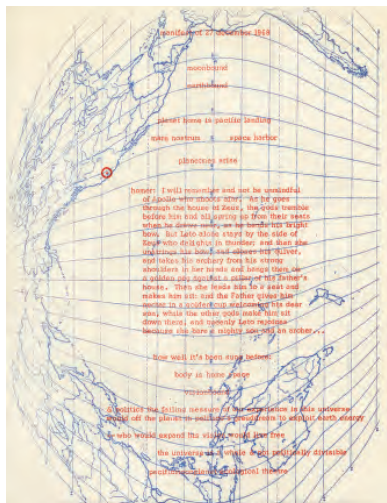 manifest of 27 december 1968
moonbound
northbound
planet home in pacific landing
mare nostrum space harbor
planetoes arise
homer: I will remember and not be unmindful
of Apollo who shoots afar. As he goes
through the house of Zeus, the gods tremble
before him and all spring up from their seats
when he draws near, as he bends his bright
bow. But Leto alone stays by the side of
Zeus who delights in thunder; and then she
unstrings his bow, and closes his quiver,
and takes his archery from his strong
shoulders in her hands and hangs them on
a golden peg against a pillar of his father's
house. Then she leads him to a seat and
makes him sit: and the Father gives him
nectar in a golden cup welcoming his dear
son, while the other gods make him sit
down there, and queenly Leto rejoices
because she bore a mighty son and an archer...
how well it's been sung before
body is home space
politics the failing measure of experience in this universe
would off the planet in to exploit earth energy
who would expend his vision would live free
the universe is a whole & not politically divisible
theatre